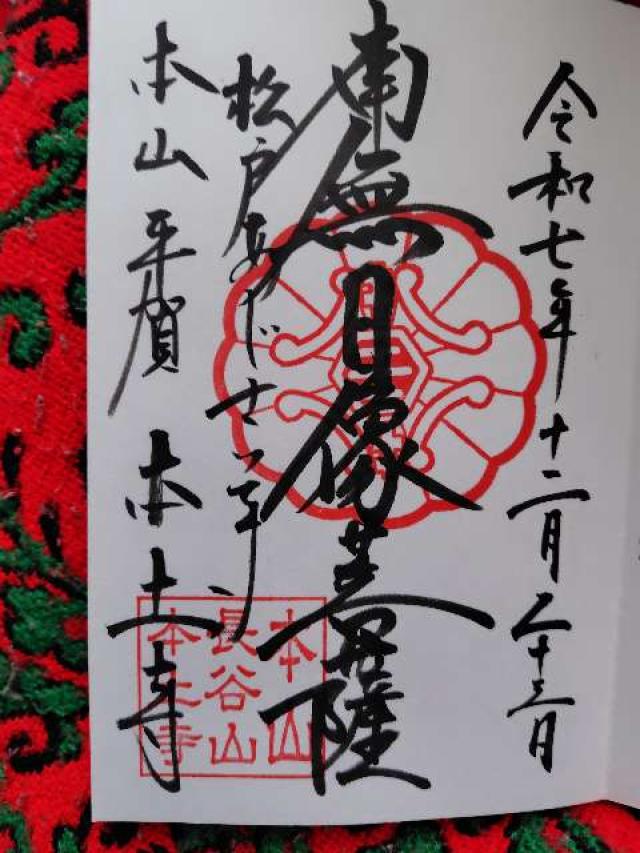 令和七年十二月二十三日
南無日像菩薩
松戸あじさい寺
本山平賀 本土寺
本山
長谷山
本土寺